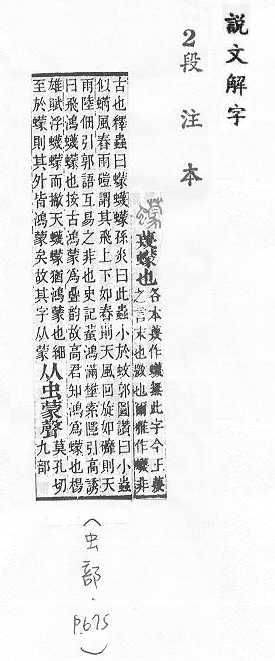 說文解字
2段注本
蠓 蔑蠓也 各本蔑作蠛無此字今正蔑
之言末也㪔也爾雅作蠛非
古也釋蟲曰蠓蠛蠓孫炎曰此蟲小於蚊郭圖讚曰小蟲
似蜹風舂雨磑謂其飛上下如舂則天風回旋如磑則天
雨陸佃引郭語互易之非也史記蜚鴻滿壄索隱引高誘
曰飛鴻蠛蠓也按古鴻蒙爲疊韵故高君知鴻爲蠓也楊
雄賦浮蠛蠓而撇天蠛蠓猶鴻蒙也細
至於蠓則其外皆鴻蒙矣故其字从蒙
从虫蒙聲 莫孔切
九部
(虫部．P.675)